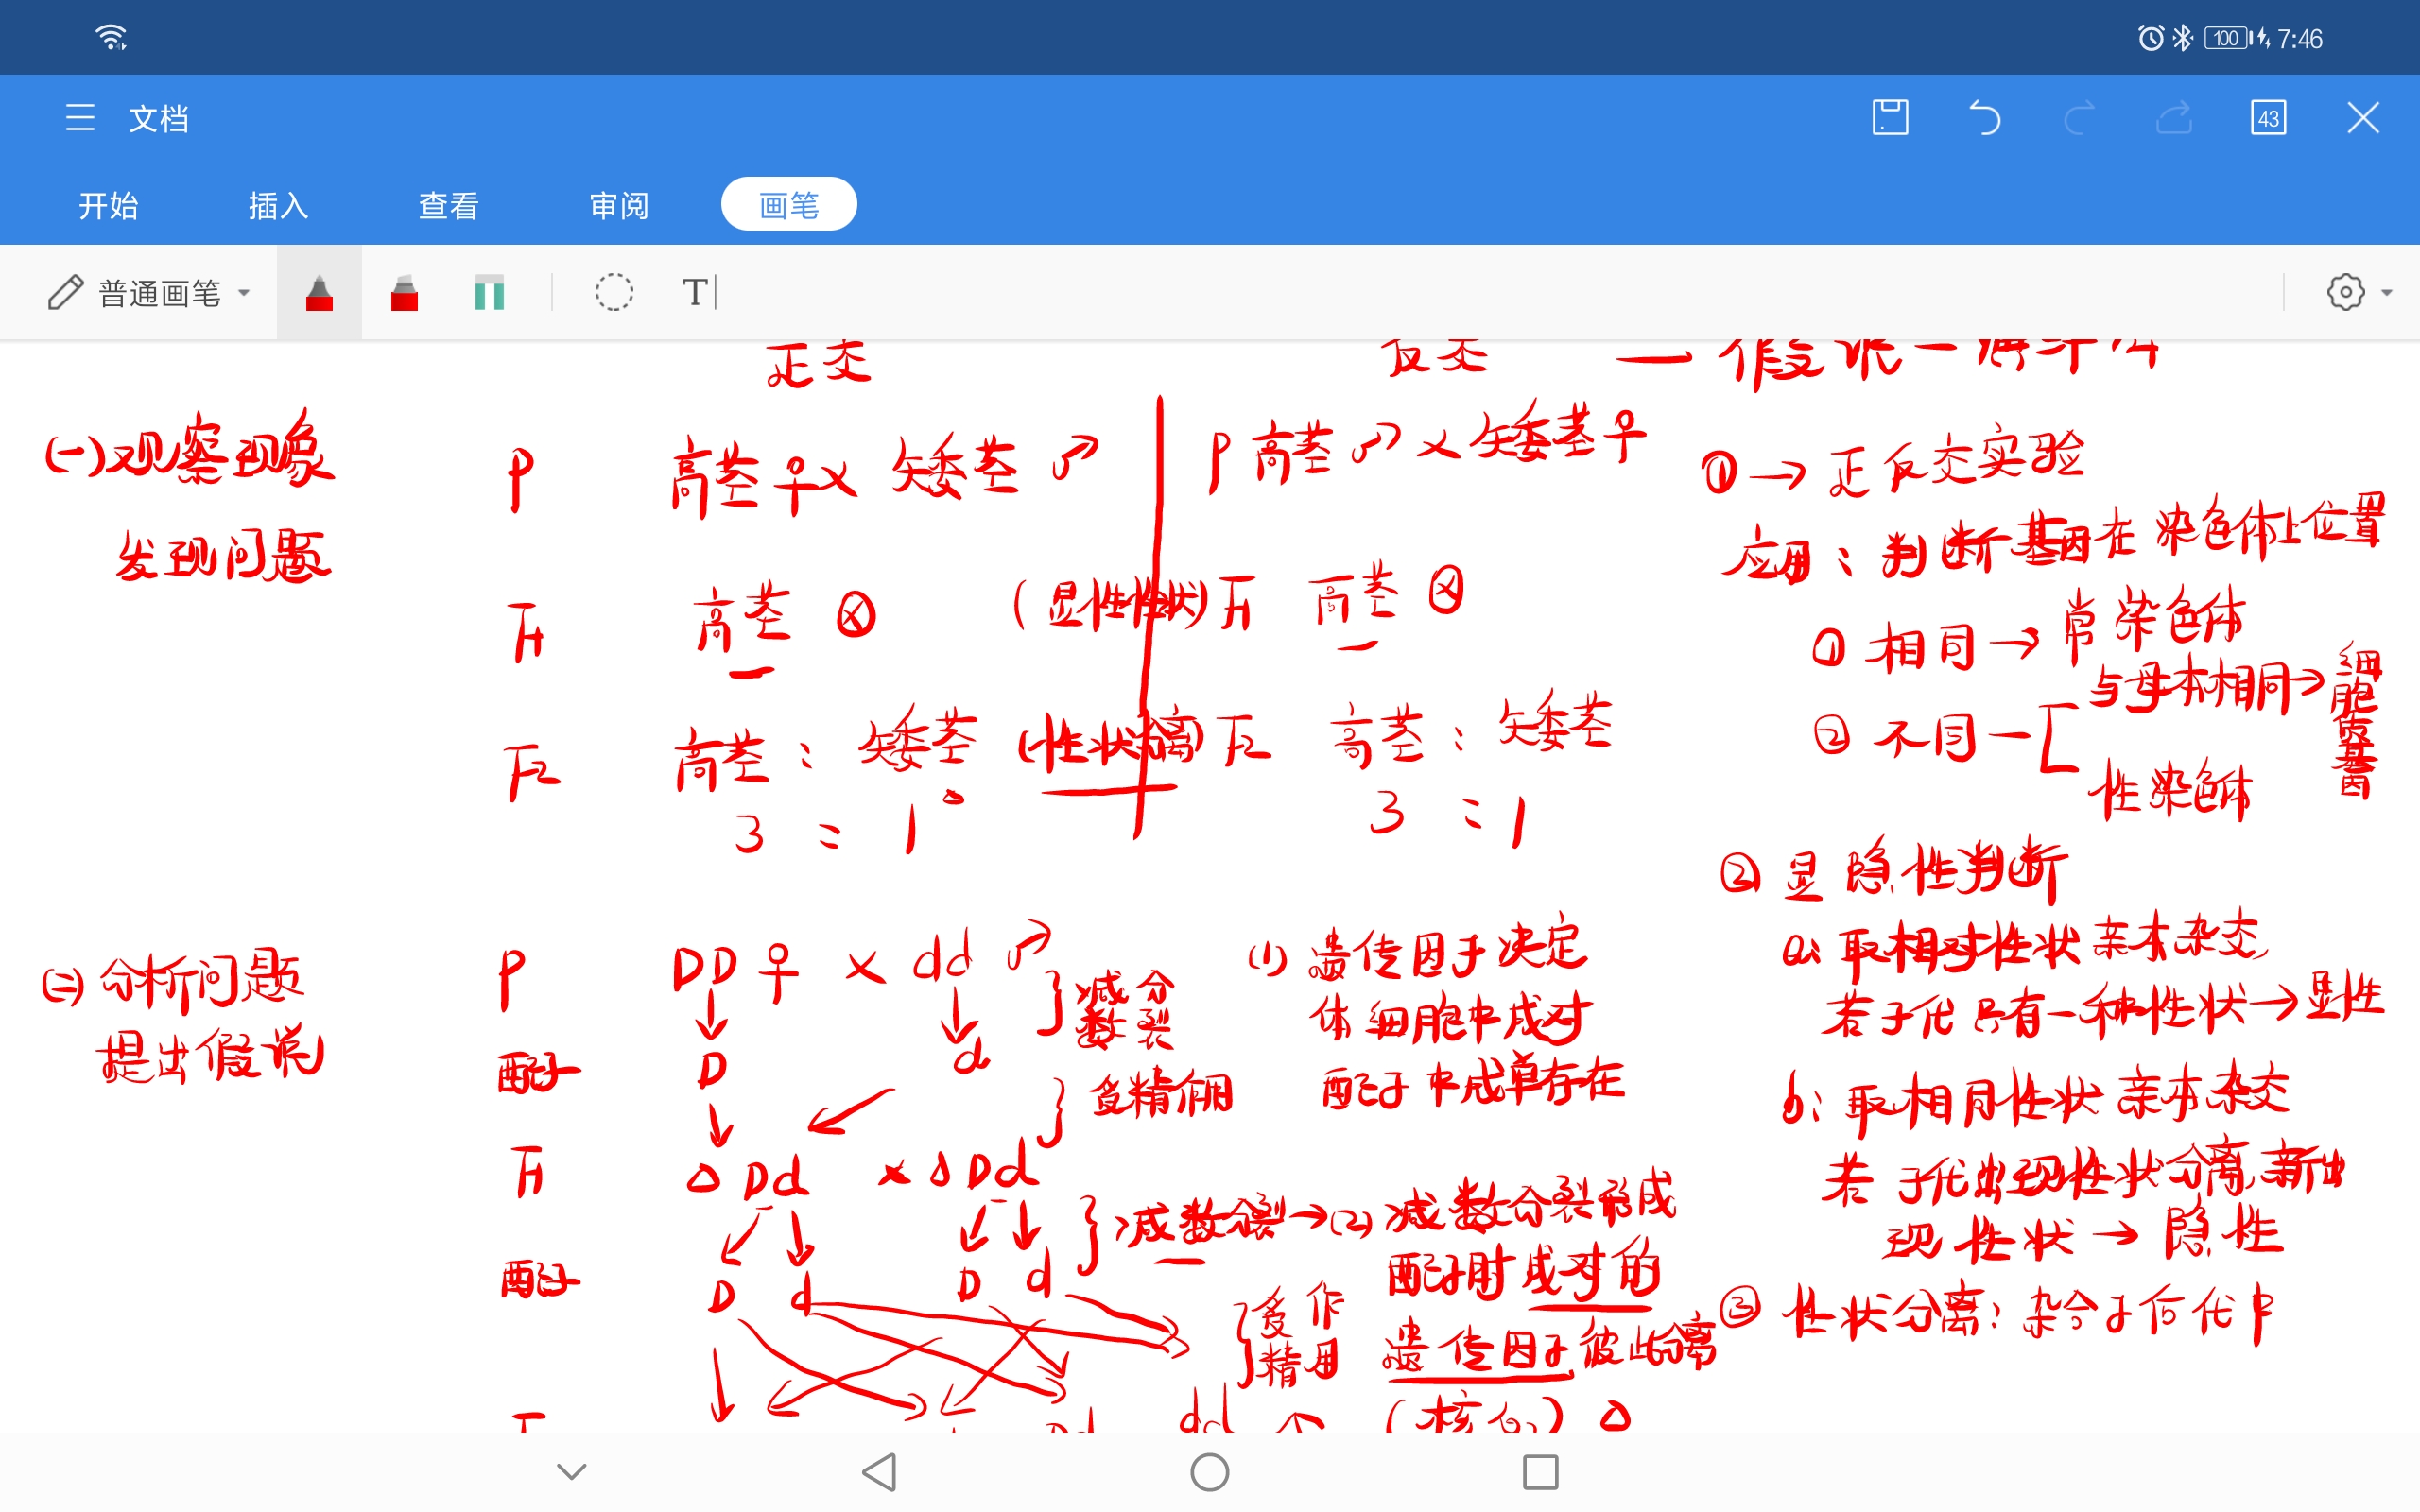 100 7:46
文档
43
开始 插入 查看 审阅 画笔
普通画笔 T
正交 反交
(一)观察现象
发现问题
P 高茎♀× 矮茎♂
P 高茎♂×矮茎♀
F1 高茎 ⊗ (显性性状)
F1 高茎 ⊗
F2 高茎 : 矮茎 (性状分离)
3 : 1
F2 高茎 : 矮茎
3 : 1
①→正反交实验
应用:判断基因在染色体上位置
①相同→常染色体
②不同
与母本相同→细胞质基因
性染色体
②显隐性判断
a:取相对性状亲本杂交
若子代只有一种性状→显性
b:取相同性状亲本杂交
若子代出现性状分离,新出
现性状→隐性
③性状分离:杂合子
(二)分析问题
提出假说
P DD♀ × dd♂
减数分裂
配子 D d
F1 Dd × Dd
减数分裂→(2)减数分裂形成
配子时成对的
遗传因子彼此分离
(核心)
配子 D d D d
dd
(1)遗传因子决定
体细胞中成对
配子中成单存在